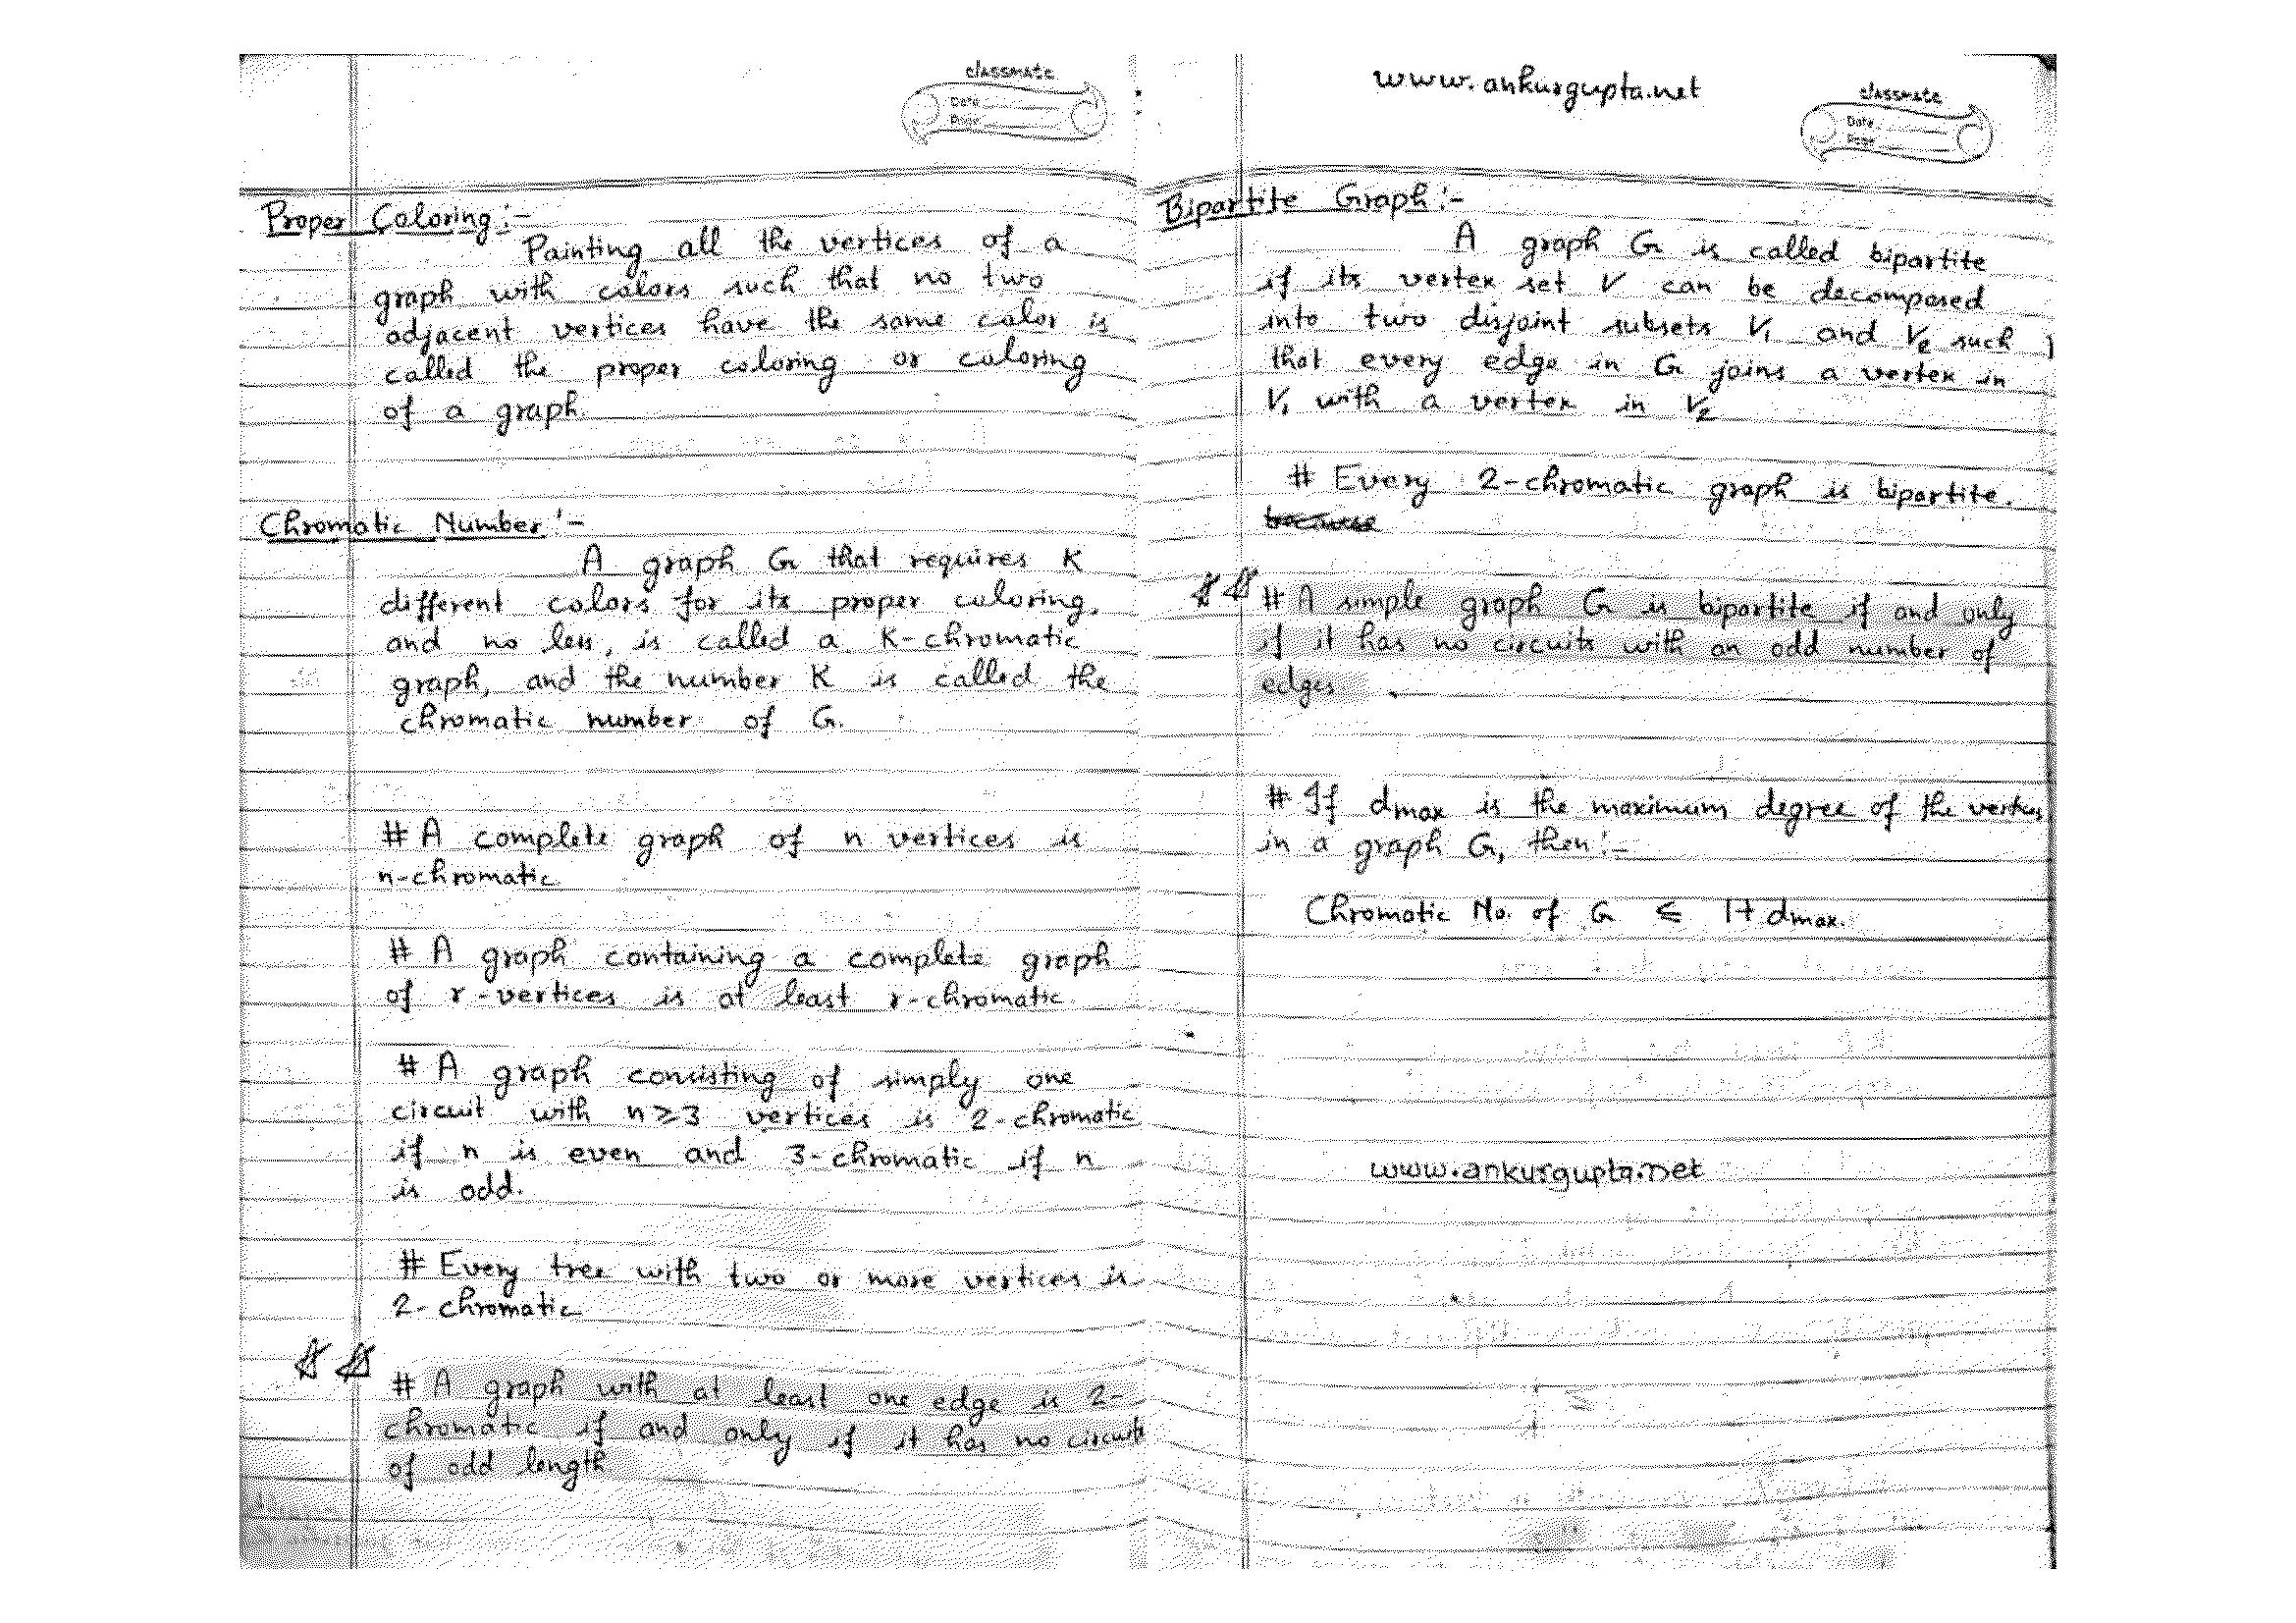 classmate
Date
Page
Proper Coloring:-
Painting all the vertices of a
graph with colors such that no two
adjacent vertices have the same color is
called the proper coloring or coloring
of a graph.
Chromatic Number:-
A graph G that requires K
different colors for its proper coloring,
and no less, is called a K-chromatic
graph, and the number K is called the
chromatic number of G.
# A complete graph of n vertices is
n-chromatic
# A graph containing a complete graph
of r-vertices is at least r-chromatic.
# A graph consisting of simply one
circuit with n≥3 vertices is 2-chromatic
if n is even and 3-chromatic if n
is odd.
# Every tree with two or more vertices is
2-chromatic
# A graph with at least one edge is 2-
chromatic if and only if it has no circuits
of odd length
www.ankurgupta.net
classmate
Date
Page
Bipartite Graph:-
A graph G is called bipartite
if its vertex set V can be decomposed
into two disjoint subsets V1 and V2 such
that every edge in G joins a vertex in
V1 with a vertex in V2
# Every 2-chromatic graph is bipartite.
because
# A simple graph G is bipartite if and only
if it has no circuits with an odd number of
edges .
# If dmax is the maximum degree of the vertices
in a graph G, then:-
Chromatic No. of G ≤ 1+dmax.
www.ankurgupta.net